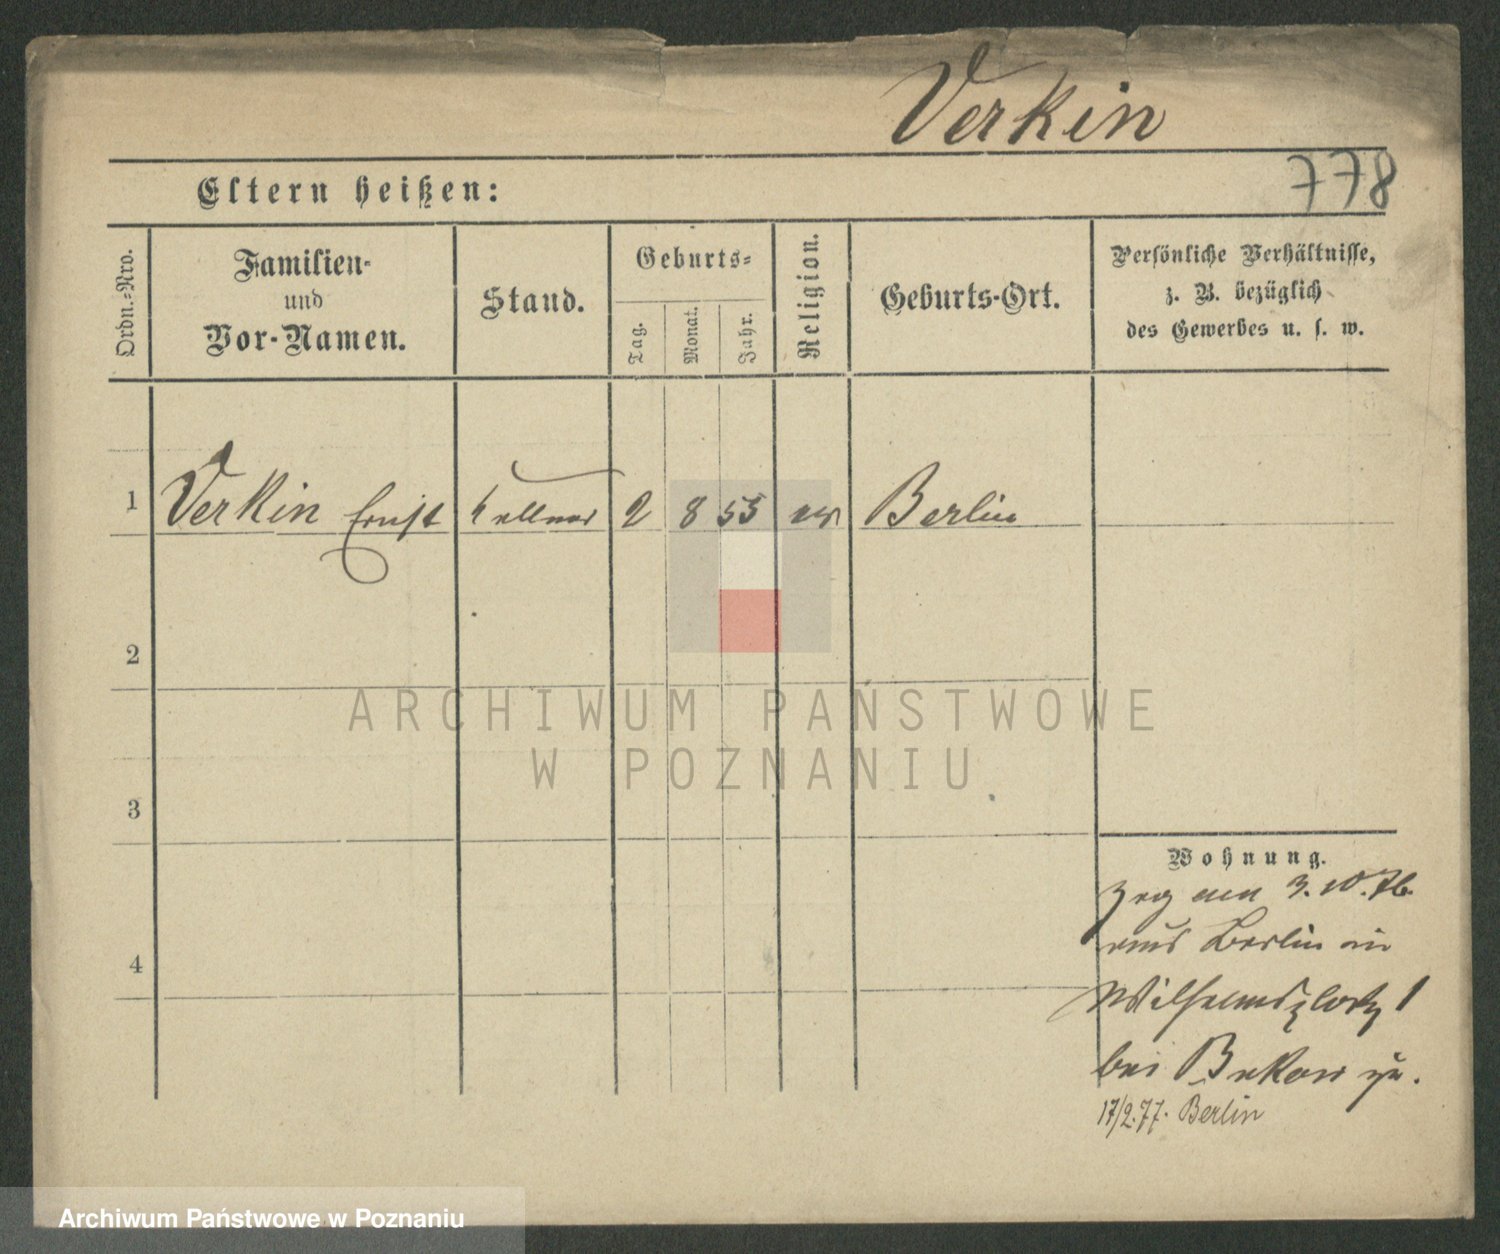 Verkin
778
Eltern heißen:
Ordn.=Nro.
Familien-
und
Vor-Namen.
Stand.
Geburts=
Tag.
Monat.
Jahr.
Religion.
Geburts-Ort.
Persönliche Verhältnisse,
z. B. bezüglich
des Gewerbes u. s. w.
1 Verkin Ernst Kellner 2 8 53 ev Berlin
2
ARCHIWUM PAŃSTWOWE
W POZNANIU
3
Wohnung.
Zog am 3.10.76.
aus Berlin in
4
Wilhelmsplatz 1
bei zu.
17/2.77. Berlin
Archiwum Państwowe w Poznaniu